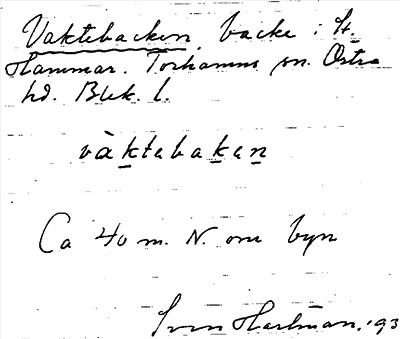 Vaktebacken, backe i St.
Hammar. Torhamns sn. Östra
hd. Blek. l.
vàktebaken
Ca 40 m. N. om byn
Sven Hartman. 193